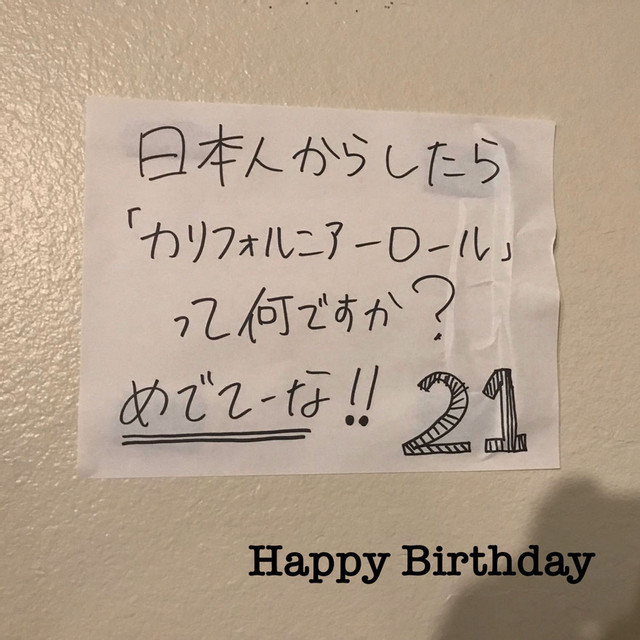 日本人からしたら
「カリフォルニアーロール」
って何ですか?
めでてーな!!
21
Happy Birthday